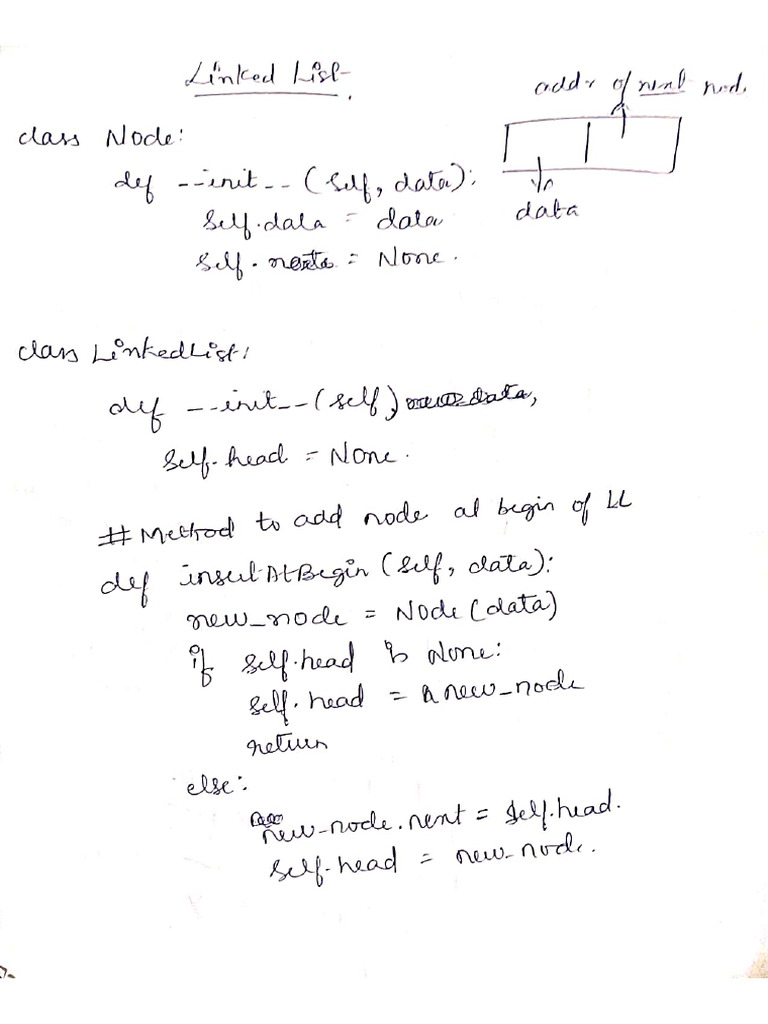 Linked List
addr of next nod.
class Node:
def __init__(self, data):
self.data = data
data
self.next = None.
class LinkedList:
def __init__(self)
self.head = None.
# Method to add node at begin of LL
def insertAtBegin(self, data):
new_node = Node(data)
if self.head is None:
self.head = new_node
return
else:
new_node.next = self.head.
self.head = new_node.